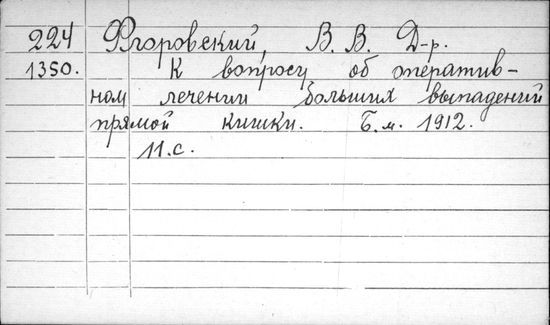 224 Ягоровский, В. В. Д-р.
1350. К вопросу об оператив-
ном лечении больших выпадений
прямой кишки. Б.м. 1912.
11.с.